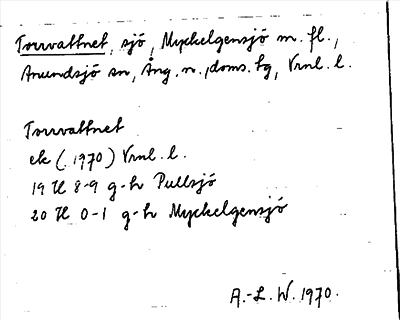 Torrvattnet, sjö, Myckelgensjö m. fl.,
Anundsjö sn, Ång. n., doms. tg, Vrnl. l.
Torrvattnet
ek (1970) Vrnl. l.
19 H 8-9 g-h Pullsjö
20 H 0-1 g-h Myckelgensjö
A.-L. W. 1970.